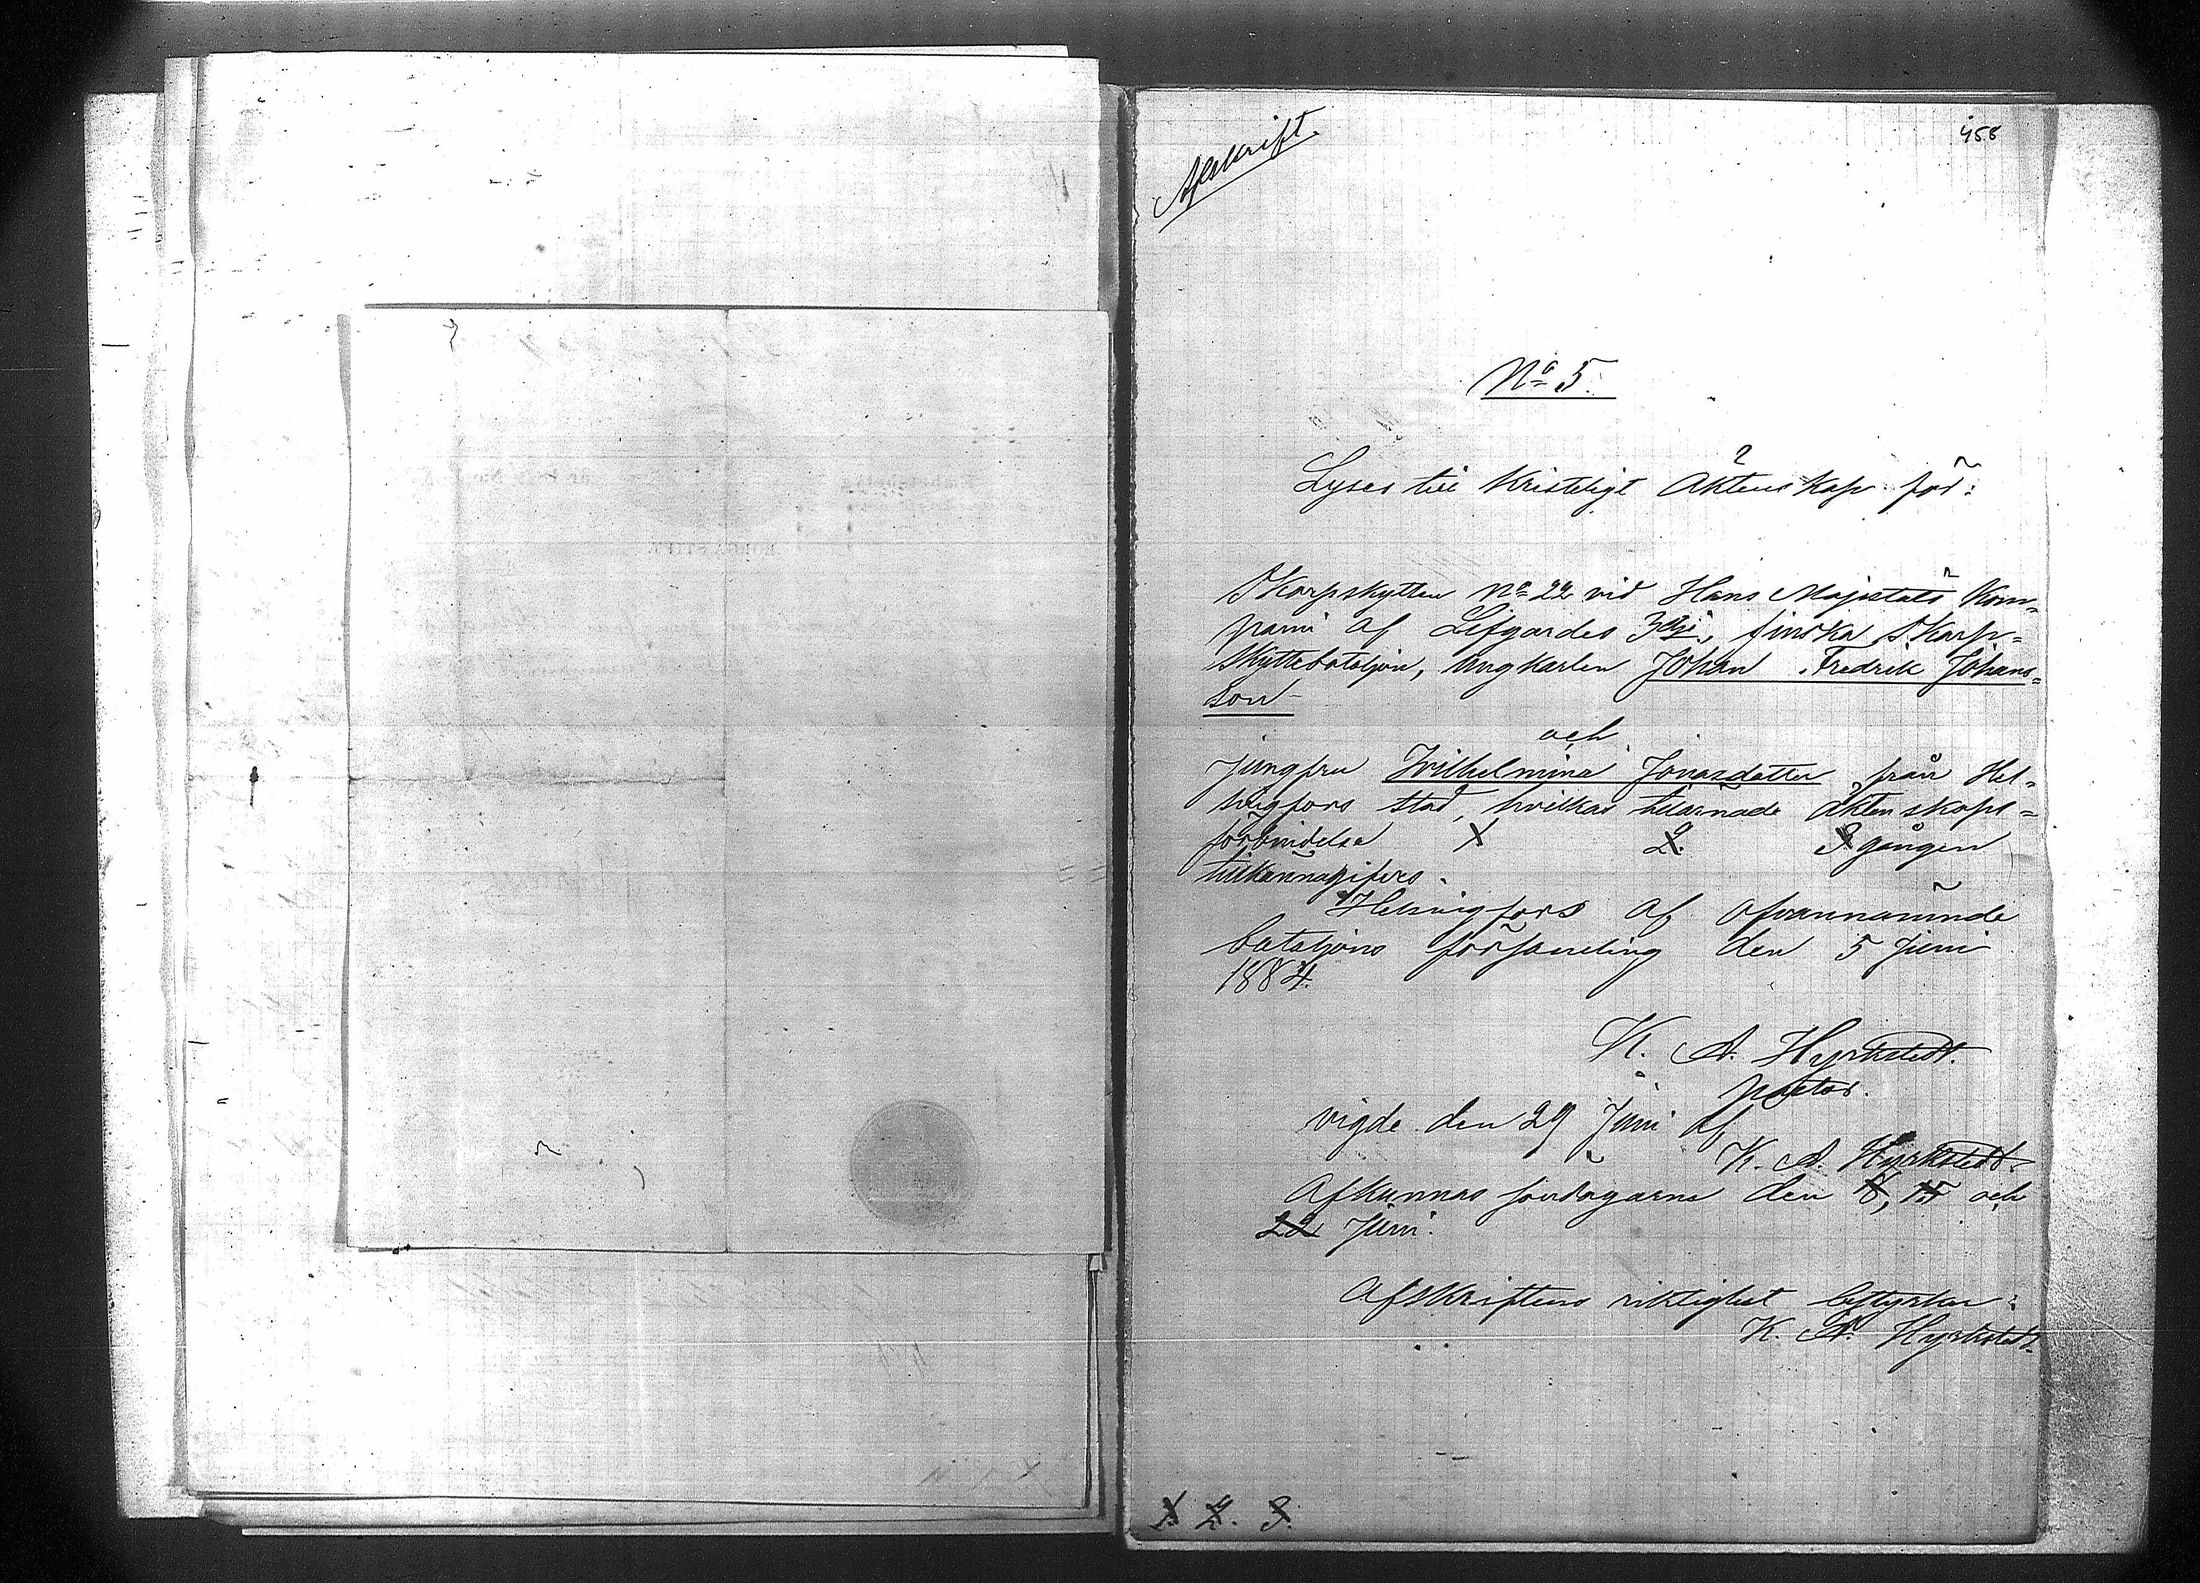 458
Afskrift.
No 5.
Lyses till kristeligt Äktenskap för:
Skarpskytten No 22 vid Hans Majestäts Kom=
pani af Lifgardes 3dje, finska Skarp=
skyttebataljon, ungkarlen Johan Fredrik Johans=
son
och
jungfru Wilhelmina Jonasdotter från Hel=
singfors stad, hvilkas tillärnade äktenskaps=
förbindelse 1 2. 3 gången
tillkännagifves.
Helsingfors af ofvannämnde
bataljons församling den 5 Juni
1884.
K. A. Hyrkstedt.
pastor.
vigde den 29 Juni af
K. A. Hyrkstedt.
Afkunnas söndagarne den 8, 15 och
22 Juni.
Afskriftens riktighet bestyrker:
K. A. Hyrkstedt.
1 2. 3.